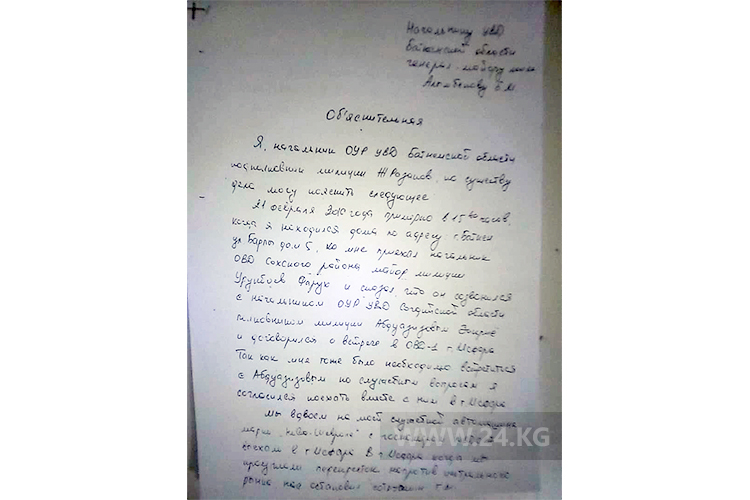 Начальнику УВД
Баткенской области
генерал-майору
Об'яснительная
Я, начальник ОУР УВД Баткенской области
подполковник милиции Ж Розаков, по существу
дела могу пояснить следующее
21 февраля 2010 года примерно в 15 00 часов,
когда я находился дома по адресу г. Баткен
ул Барпы дом 5, ко мне приехал начальник
ОВД Сохского района майор милиции
Урунбоев Фарух и сказал, что он созвонился
с начальником ОУР УВД Согдийской области
полковником милиции Абдуазизовым
и договорился о встрече в ОВД-1 г. Исфара
Так как мне тоже было необходимо встретится
с Абдуазизовым по служебным вопросам я
согласился поехать вместе с ним в г Исфара
Мы вдвоем на моей служебной автомашине
марки "Нива-Шевроле" с
в г Исфара В г Исфара когда мы
перекресток напротив центрального
рынка нас остановил
WWW.24.KG